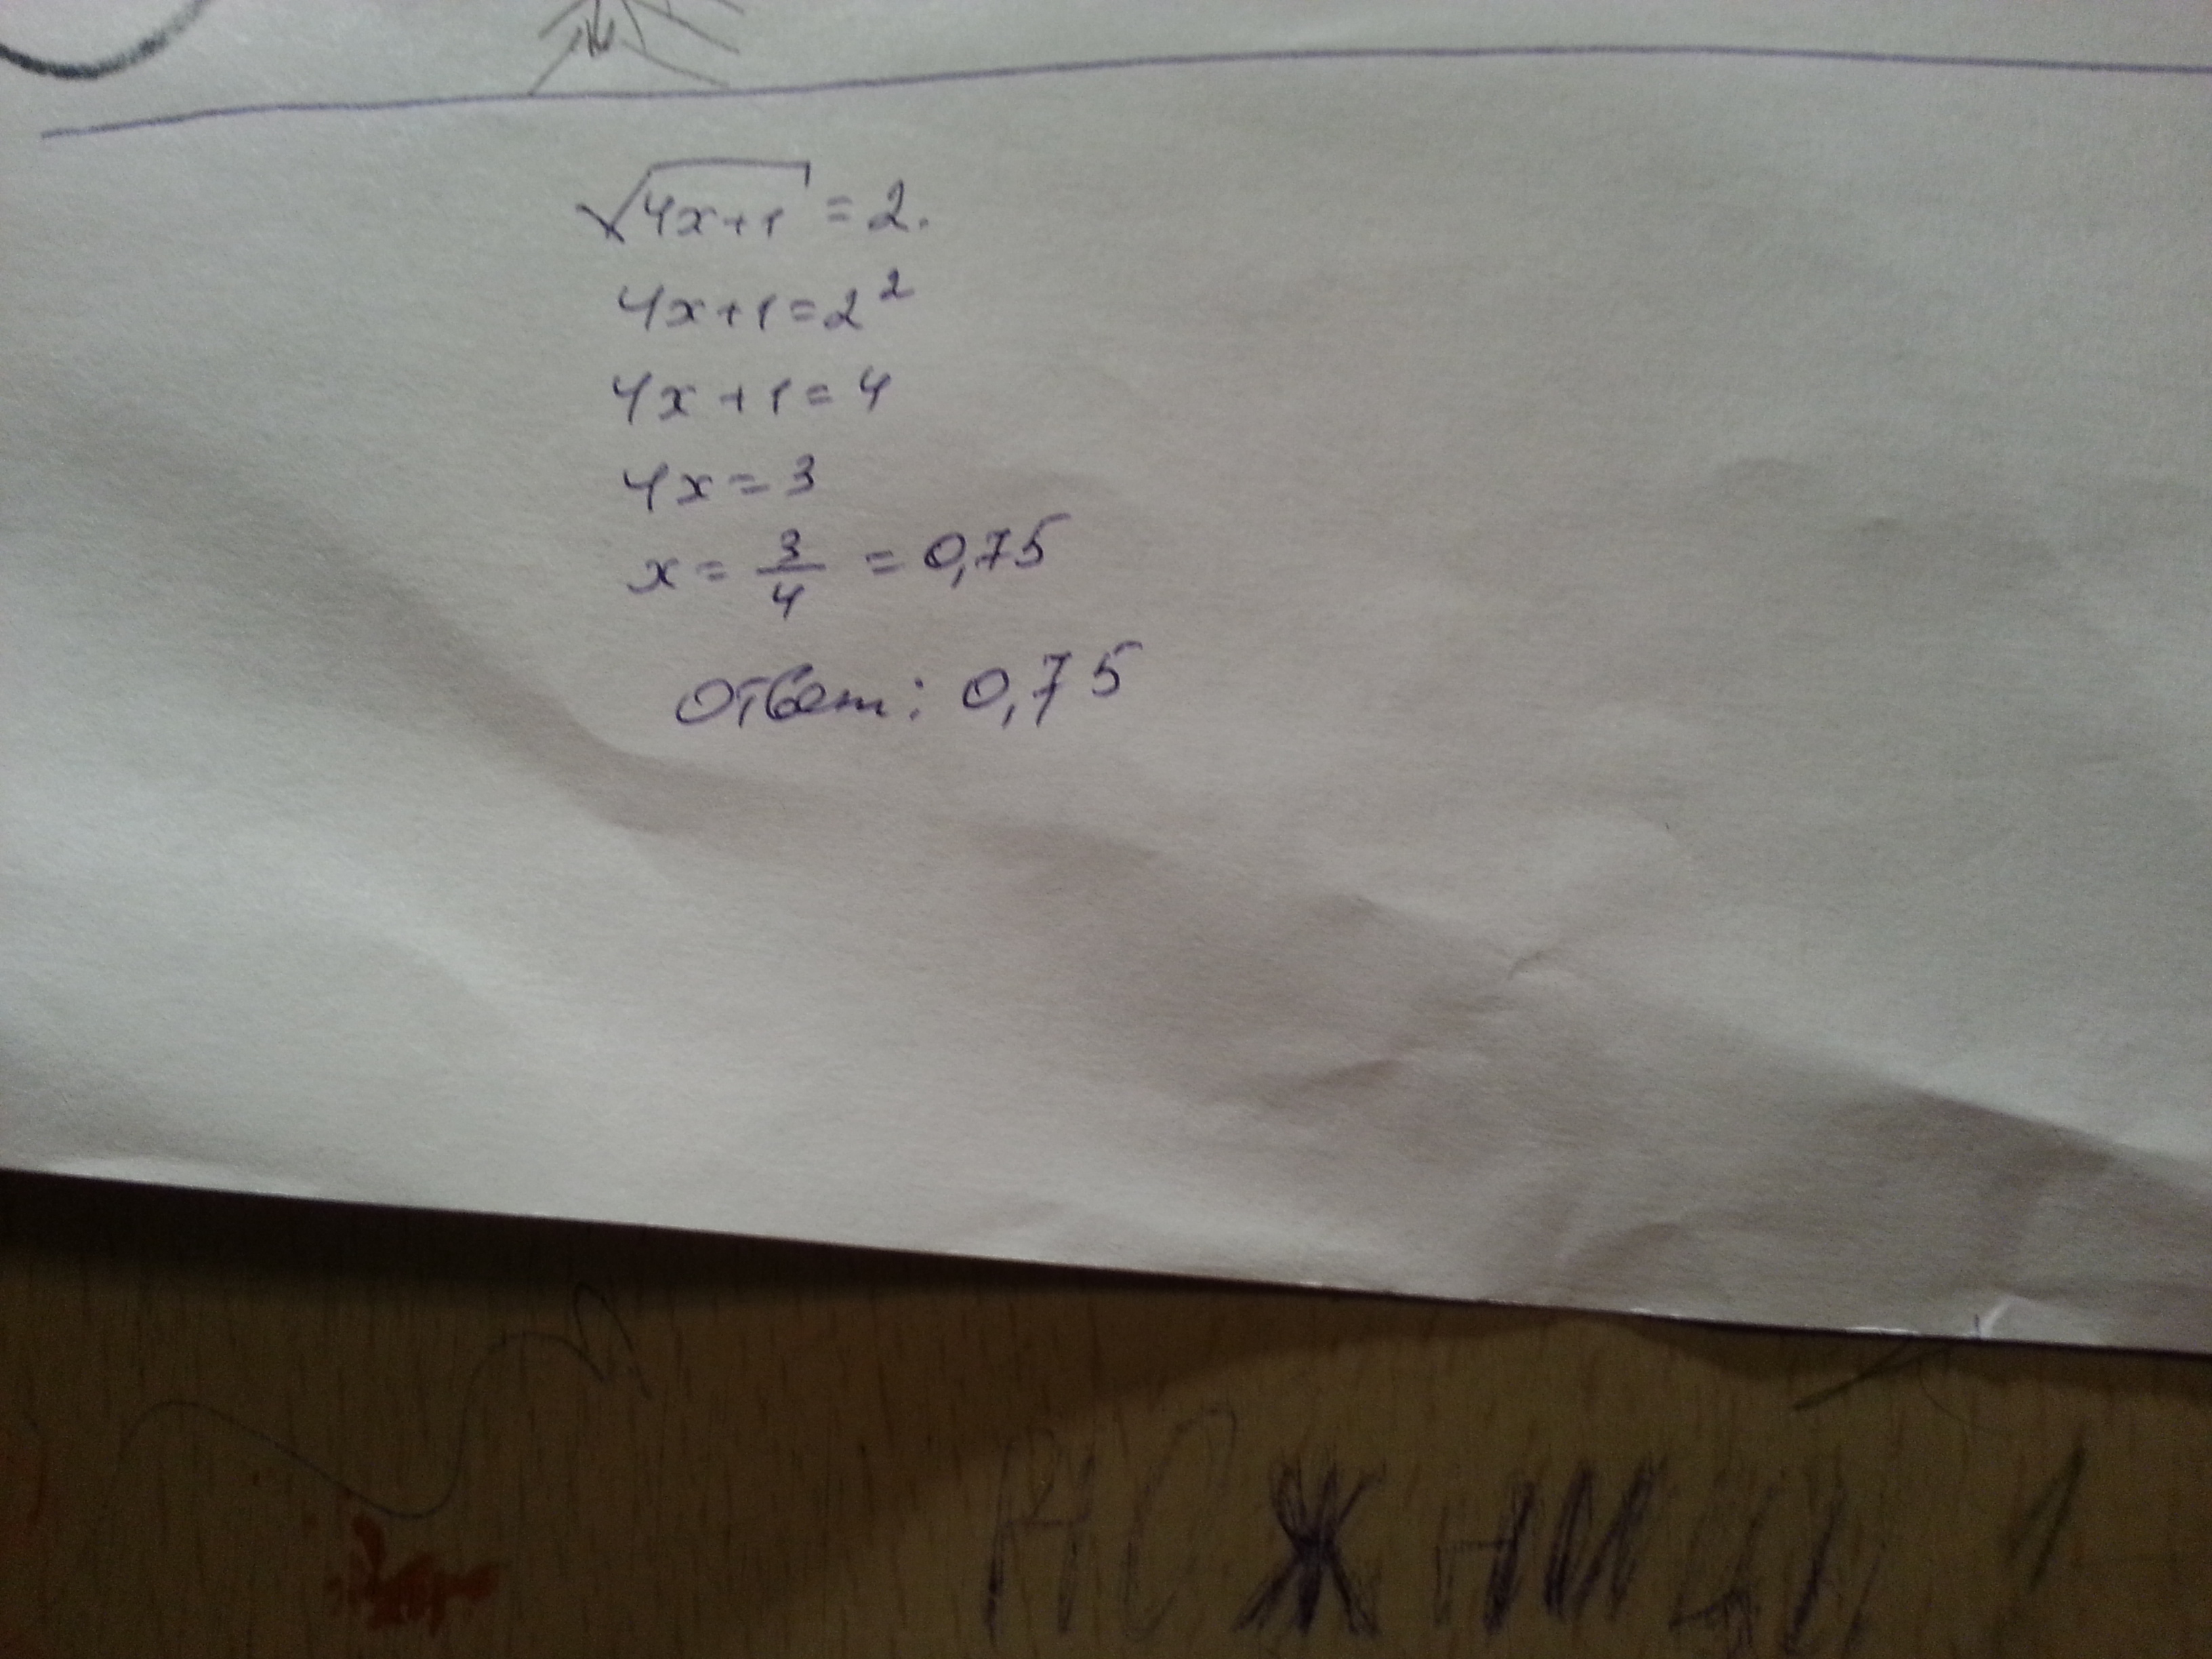 √4x+1 = 2.
4x+1=2²
4x+1=4
4x=3
x = 3/4 = 0,75
Ответ: 0,75